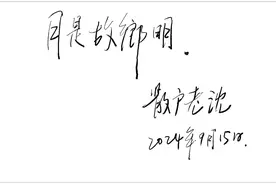 月是故鄉明.
散户老沈
2024年9月15日.